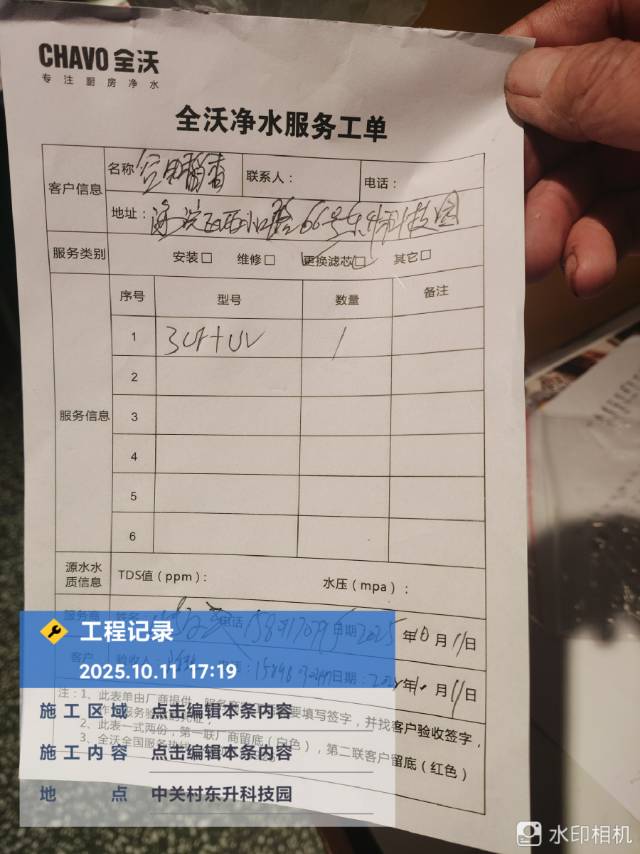 CHAVO 全沃
专注厨房净水
全沃净水服务工单
客户信息
名称
联系人：
电话：
地址： 海淀西小口路66号东升科技园
服务类别
安装□ 维修□ 更换滤芯□ 其它□
服务信息
序号 型号 数量 备注
1 3UF+UV 1
2
3
4
5
6
源水水质信息
TDS值（ppm）： 水压（mpa）：
服务商 电话 日期 2025年10月11日
客户 验收人 日期： 年10月11日
注：1、此表单由厂商提供，服务 要填写签字，并找客户验收签字，
作 服务验
2、此表一式两份，第一联厂商留底（白色），第二联客户留底（红色）
3、全沃全国服务热线
工程记录
2025.10.11 17:19
施工区域 点击编辑本条内容
施工内容 点击编辑本条内容
地点 中关村东升科技园
水印相机